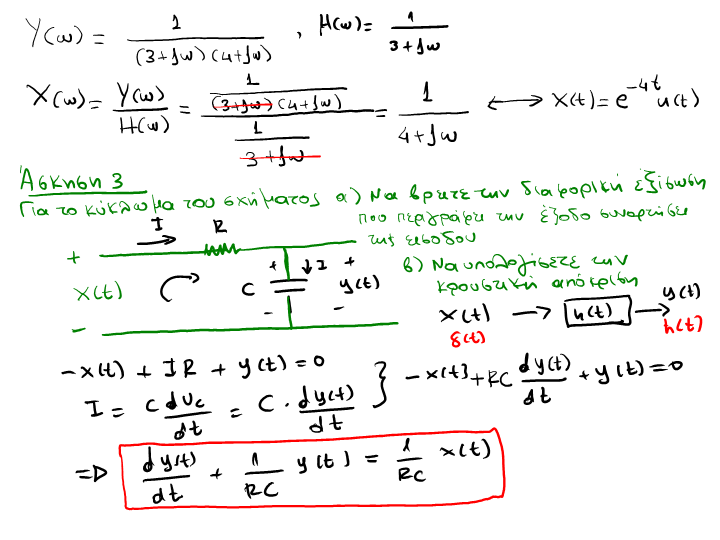 Y(ω) = 1 / (3+jω)(4+jω) , H(ω) = 1 / 3+jω
X(ω) = Y(ω) / H(ω) = (1 / (3+jω)(4+jω)) / (1 / 3+jω) = 1 / 4+jω ⟷ x(t) = e^{-4t} u(t)
Άσκηση 3
Για το κύκλωμα του σχήματος α) Να βρετε την διαφορική εξίσωση
που περιγράφει την έξοδο συναρτήσει
της εισόδου
β) Να υπολογίσετε την
κρουστική απόκριση
I R
+ + I +
x(t) C y(t)
- - -
x(t) → h(t) → y(t)
δ(t) h(t)
-x(t) + IR + y(t) = 0
I = C dVc/dt = C · dy(t)/dt } -x(t) + RC dy(t)/dt + y(t) = 0
=> dy(t)/dt + 1/RC y(t) = 1/RC x(t)